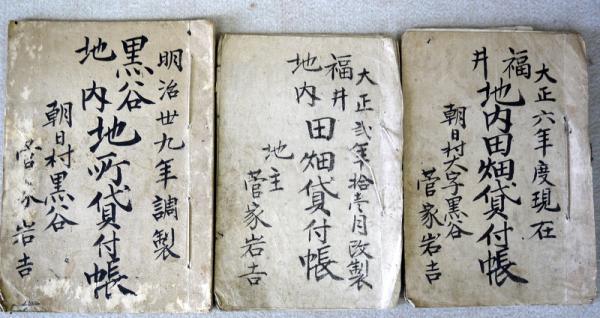 明治卅九年調製
黒谷
地内
地所貸付帳
朝日村黒谷
菅家岩吉
大正弐年拾壱月改製
福井
地内
田畑貸付帳
地主
菅家岩吉
大正六年度現在
福井
地内田畑貸付帳
朝日村大字黒谷
菅家岩吉